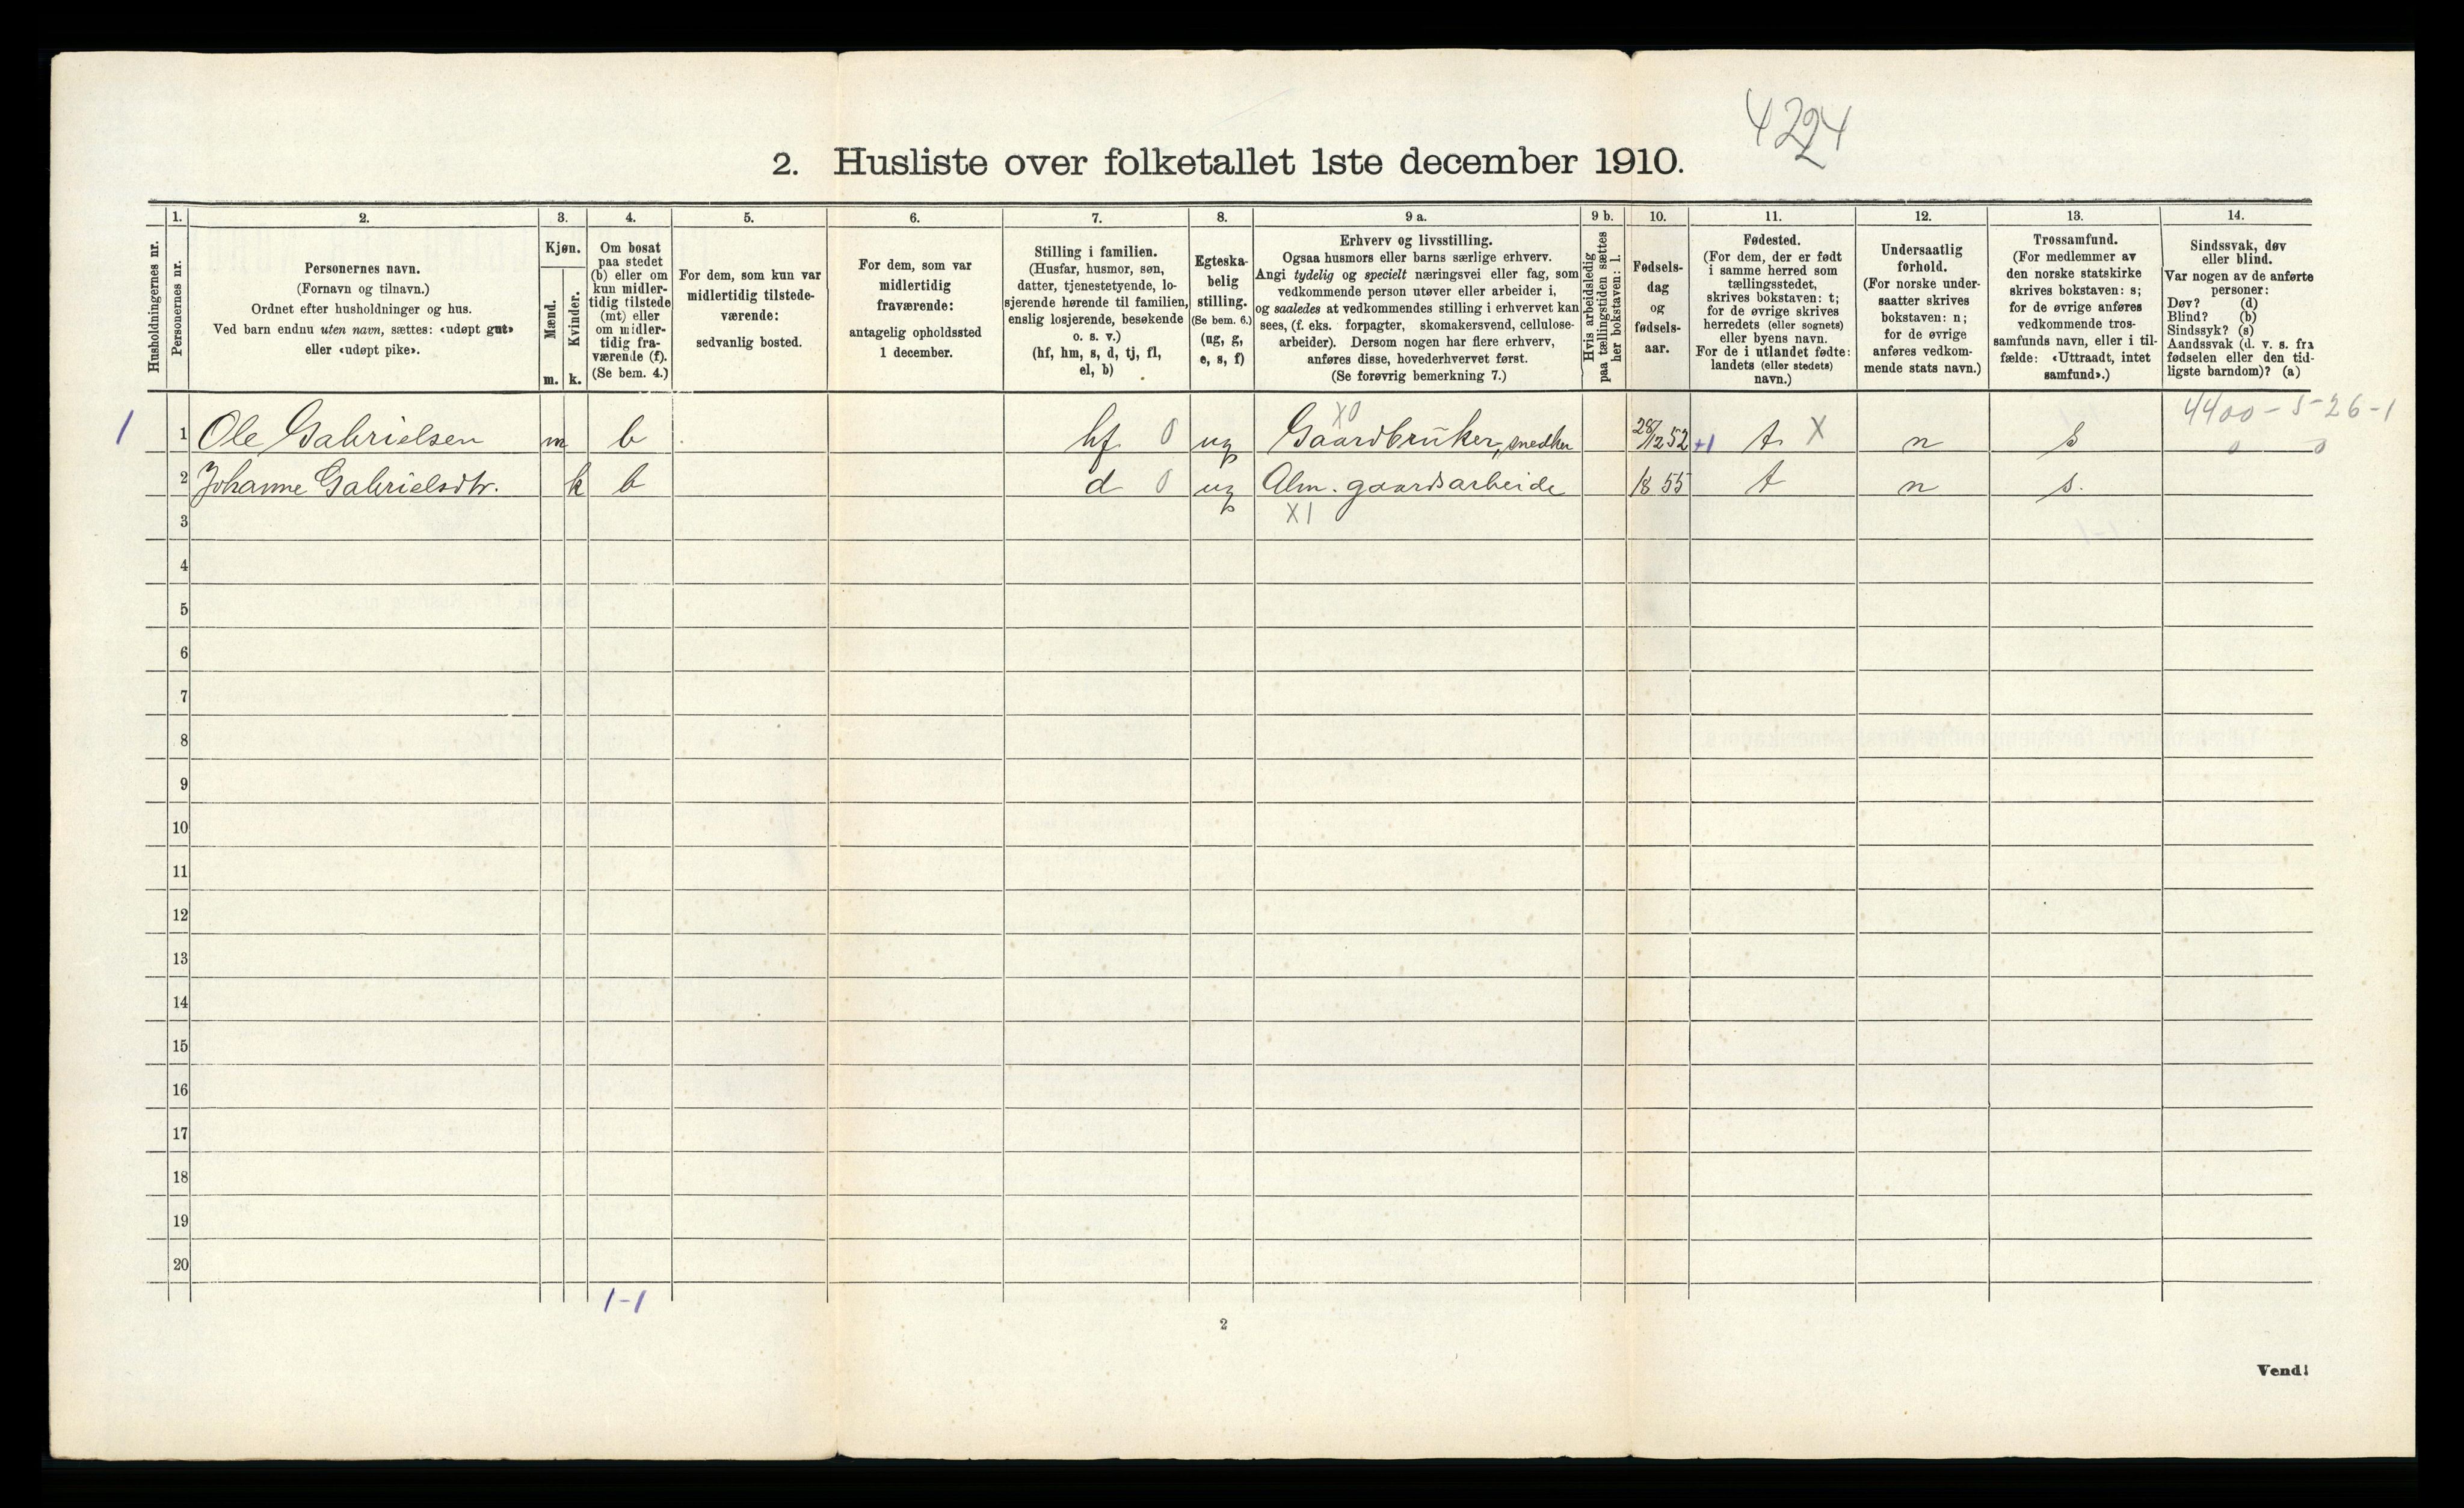 4224
2. Husliste over folketallet 1ste december 1910.
Husholdningernes nr.
1.
Personernes nr.
2.
Personernes navn.
(Fornavn og tilnavn.)
Ordnet efter husholdninger og hus.
Ved barn endnu uten navn, sættes: «udøpt gut»
eller «udøpt pike».
3.
Kjøn.
Mænd.
Kvinder.
m. k.
4.
Om bosat
paa stedet
(b) eller om
kun midler-
tidig tilstede
(mt) eller
om midler-
tidig fra-
værende (f).
(Se bem. 4.)
5.
For dem, som kun var
midlertidig tilstede-
værende:
sedvanlig bosted.
6.
For dem, som var
midlertidig
fraværende:
antagelig opholdssted
1 december.
7.
Stilling i familien.
(Husfar, husmor, søn,
datter, tjenestetyende, lo-
sjerende hørende til familien,
enslig losjerende, besøkende
o. s. v.)
(hf, hm, s, d, tj, fl,
el, b)
8.
Egteska-
belig
stilling.
(Se bem. 6.)
(ug, g,
e, s, f)
9 a.
Erhverv og livsstilling.
Ogsaa husmors eller barns særlige erhverv.
Angi tydelig og specielt næringsvei eller fag, som
vedkommende person utøver eller arbeider i,
og saaledes at vedkommendes stilling i erhvervet kan
sees, (f. eks. forpagter, skomakersvend, cellulose-
arbeider). Dersom nogen har flere erhverv,
anføres disse, hovederhvervet først.
(Se forøvrig bemerkning 7.)
9 b.
Hvis arbeidsledig
paa tællingstiden sættes
her bokstaven: l.
10.
Fødsels-
dag
og
fødsels-
aar.
11.
Fødested.
(For dem, der er født
i samme herred som
tællingsstedet,
skrives bokstaven: t;
for de øvrige skrives
herredets (eller sognets)
eller byens navn.
For de i utlandet fødte:
landets (eller stedets)
navn.)
12.
Undersaatlig
forhold.
(For norske under-
saatter skrives
bokstaven: n;
for de øvrige
anføres vedkom-
mende stats navn.)
13.
Trossamfund.
(For medlemmer av
den norske statskirke
skrives bokstaven: s;
for de øvrige anføres
vedkommende tros-
samfunds navn, eller i til-
fælde: «Uttraadt, intet
samfund».)
14.
Sindssvak, døv
eller blind.
Var nogen av de anførte
personer:
Døv? (d)
Blind? (b)
Sindssyk? (s)
Aandssvak (d. v. s. fra
fødselen eller den tid-
ligste barndom)? (a)
X0 4400-5-26-1
1 1 Ole Gabrielsen m b hf 0 ug Gaardbruker, snedker 28/12 52 +1 t X n s 0 0
2 Johanne Gabrielsdtr. k b d 0 ug Alm. gaardsarbeide 18 55 t n s.
3 X1
4
5
6
7
8
9
10
11
12
13
14
15
16
17
18
19
20
1-1
2
Vend!